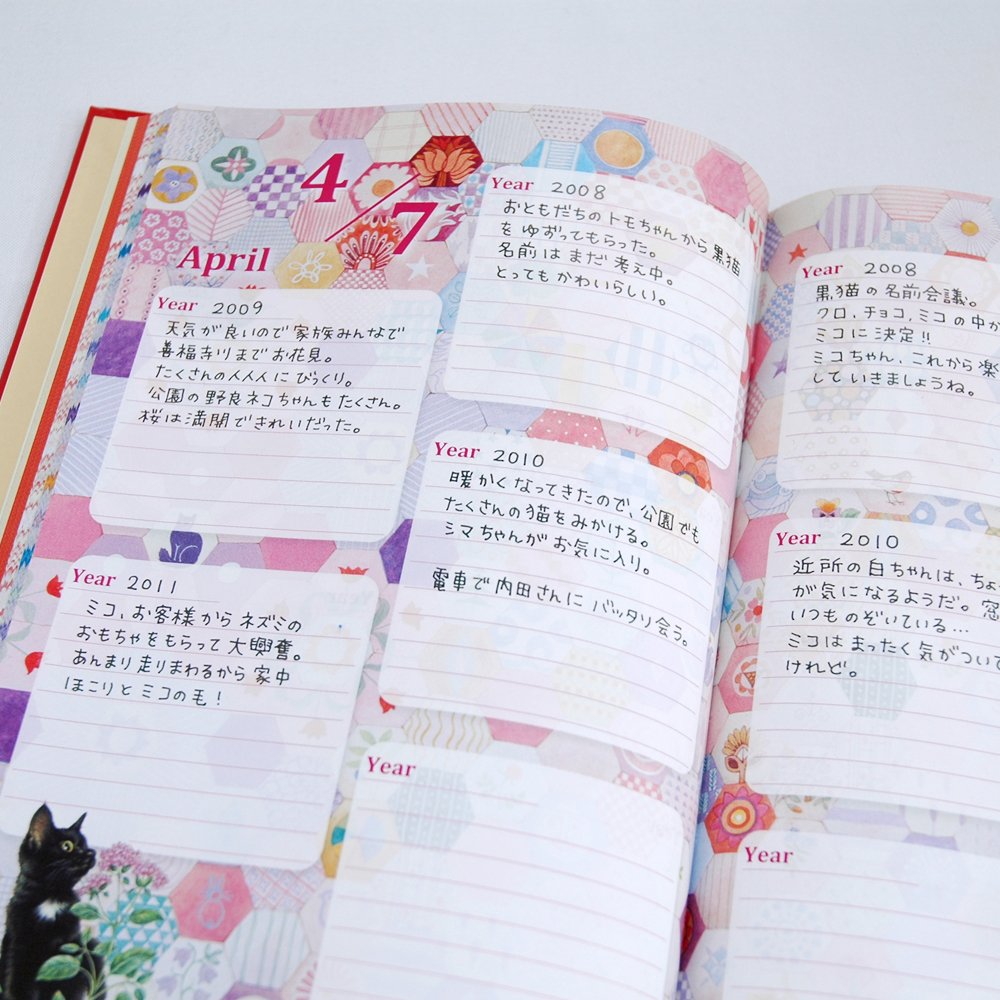 4/7
April
Year 2008
おともだちのトモちゃんから黒猫
をゆずってもらった。
名前はまだ考え中。
とってもかわいらしい。
Year 2009
天気が良いので家族みんなで
善福寺川までお花見。
たくさんの人人人にびっくり。
公園の野良ネコちゃんもたくさん。
桜は満開できれいだった。
Year 2010
暖かくなってきたので、公園でも
たくさんの猫をみかける。
シマちゃんがお気に入り。
電車で内田さんにバッタリ会う。
Year 2011
ミコ、お客様からネズミの
おもちゃをもらって大興奮。
あんまり走りまわるから家中
ほこりとミコの毛！
Year
Year 2008
黒猫の名前会議。
クロ、チョコ、ミコの中か
ミコに決定!!
ミコちゃん、これから楽
していきましょうね。
Year 2010
近所の白ちゃんは、ちょ
が気になるようだ。窓
いつものぞいている…
ミコはまったく気がついて
けれど。
Year